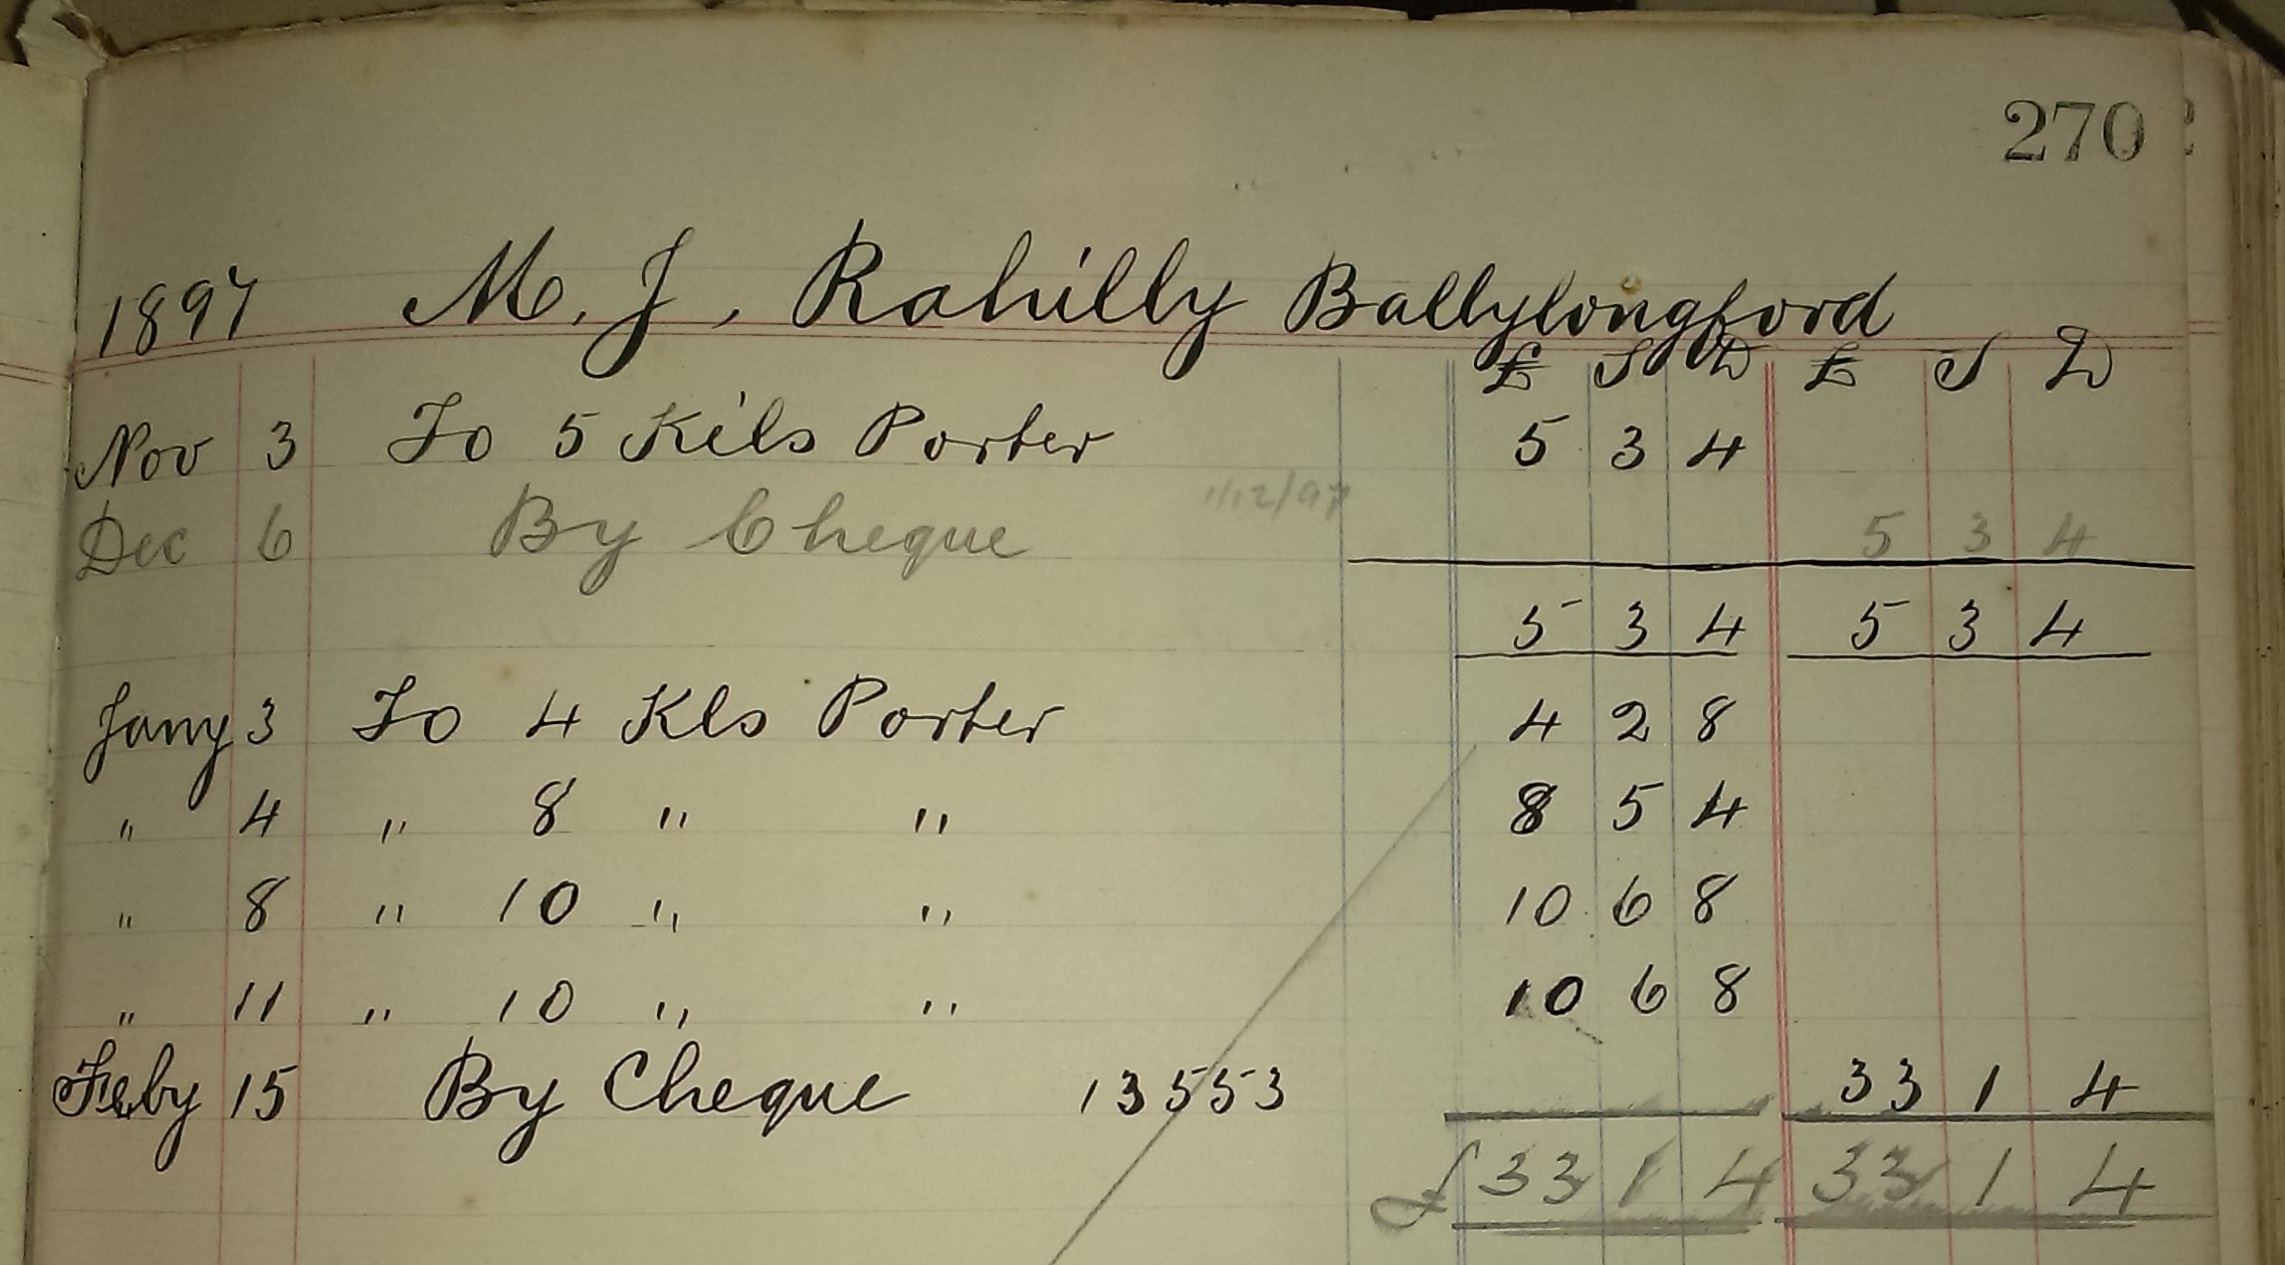 270
1897 M. J. Rahilly Ballylongford
£ S D £ S D
Nov 3 To 5 Kils Porter 5 3 4
Dec 6 By Cheque 1/12/97 5 3 4
5 3 4 5 3 4
Jany 3 To 4 Kls Porter 4 2 8
" 4 " 8 " " 8 5 4
" 8 " 10 " " 10 6 8
" 11 " 10 " " 10 6 8
Feby 15 By Cheque 13553 33 1 4
£ 33 1 4 33 1 4